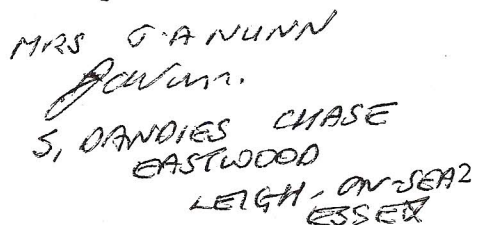 MRS J.A NUNN
JANunn.
5, DANDIES CHASE
EASTWOOD
LEIGH-ON-SEA
ESSEX